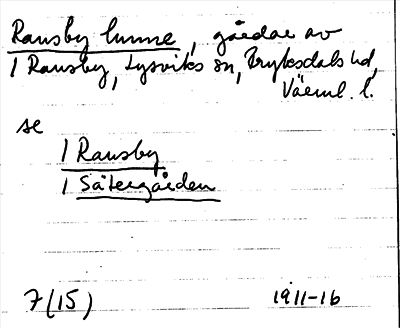 Ransby lunne, gårdar av
/ Ransby, Lysviks sn, Fryksdals hd,
Värml. l.
se
/ Ransby
/ Sätergården
7(15) 1911-16